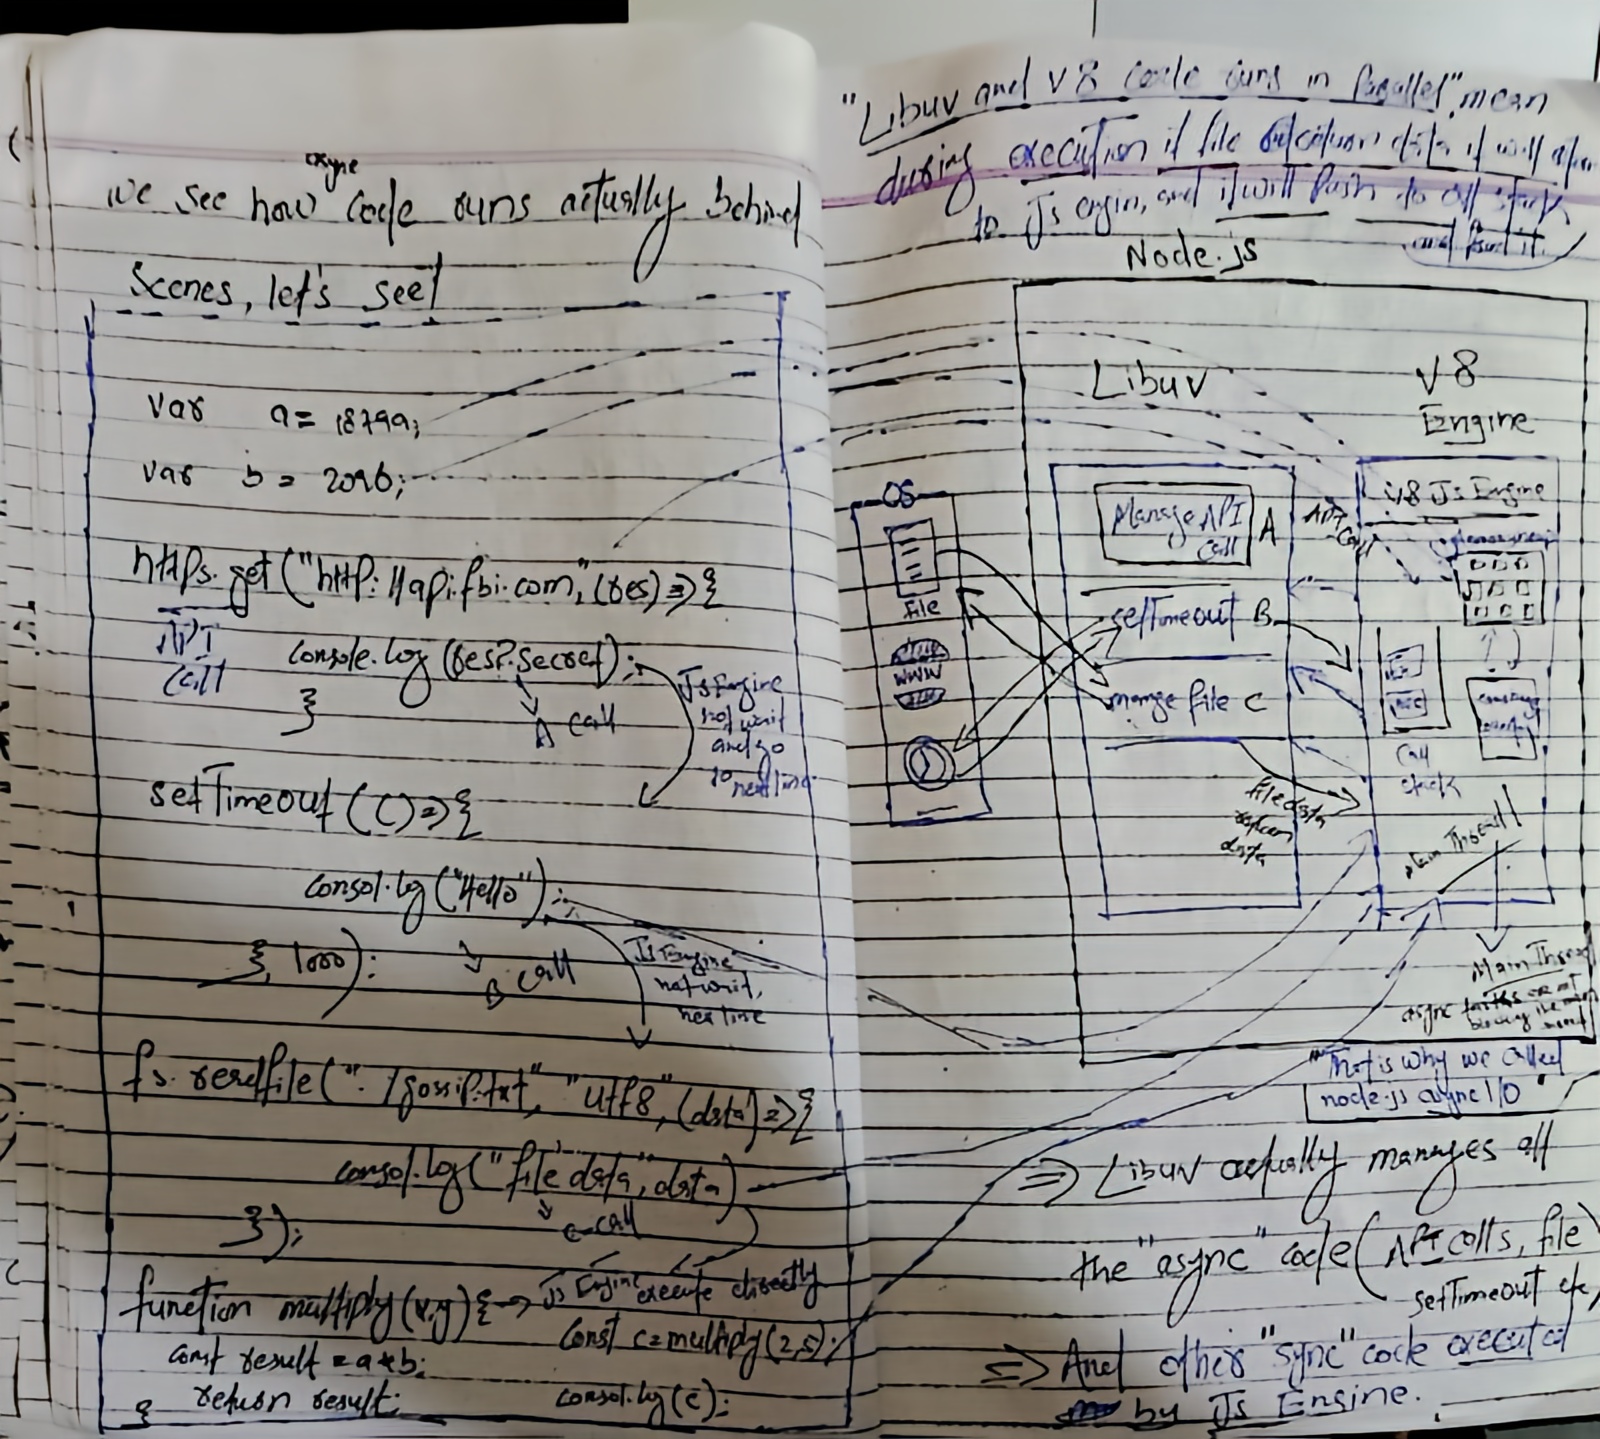 async
we see how code runs actually behind
scenes, let's see!
var a = 18799;
var b = 2096;
https.get("http://api.fbi.com", (res) => {
API
call
console.log(res?.secret);
}
A call
Js Engine
not wait
and go
to next line
setTimeout(() => {
consol.log("Hello");
}, 1000);
B call
Js Engine
not wait,
next line
fs.readfile("./gossip.txt", "utf8", (data) => {
consol.log("file data", data)
C call
});
function multiply(x,y){ → Js Engine execute directly
const result = a*b;
return result;
}
const c=multiply(2,5);
consol.log(c);
"Libuv and V8 code runs in Parallel", mean
during execution if file data it will
to Js engin, and it will Push to call stack
and
Node.js
Libuv
V8
Engine
OS
File
WWW
Manage API
call
A
setTimeout B
mange file C
API
Call
file data
return
data
V8 Js Engine
Call
stack
Main Thread
Main Thread
async
blocking the main
"That is why we called
node.js async I/O
⇒ Libuv actually manages all
the "async" code (API calls, file
setTimeout etc)
⇒ And other "sync" code executed
by Js Engine.